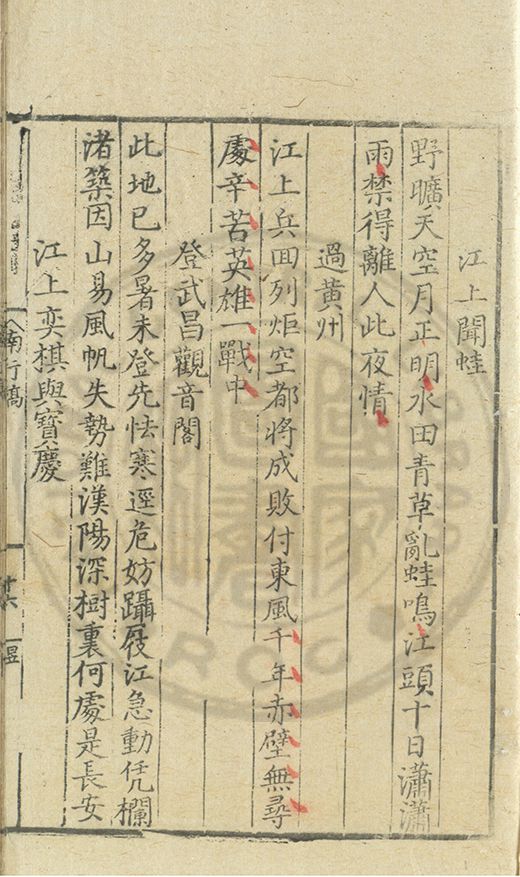 江上聞蛙
野曠天空月正明水田青草亂蛙鳴江頭十日瀟瀟
雨禁得離人此夜情
過黃州
江上兵回列炬空都將成敗付東風千年赤壁無尋
處辛苦英雄一戰中
登武昌觀音閣
此地已多暑未登先怯寒逕危妨躡屐江急動凭欄
渚築因山易風帆失勢難漢陽深樹裏何處是長安
江上奕棋與寶慶
南行稿
十六